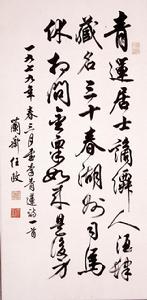 青蓮居士謫僊人酒肆
藏名三十春湖州司馬
休相問金粟如來是後身
一九七九年春三月書李青蓮詩一首
蘭齋任政